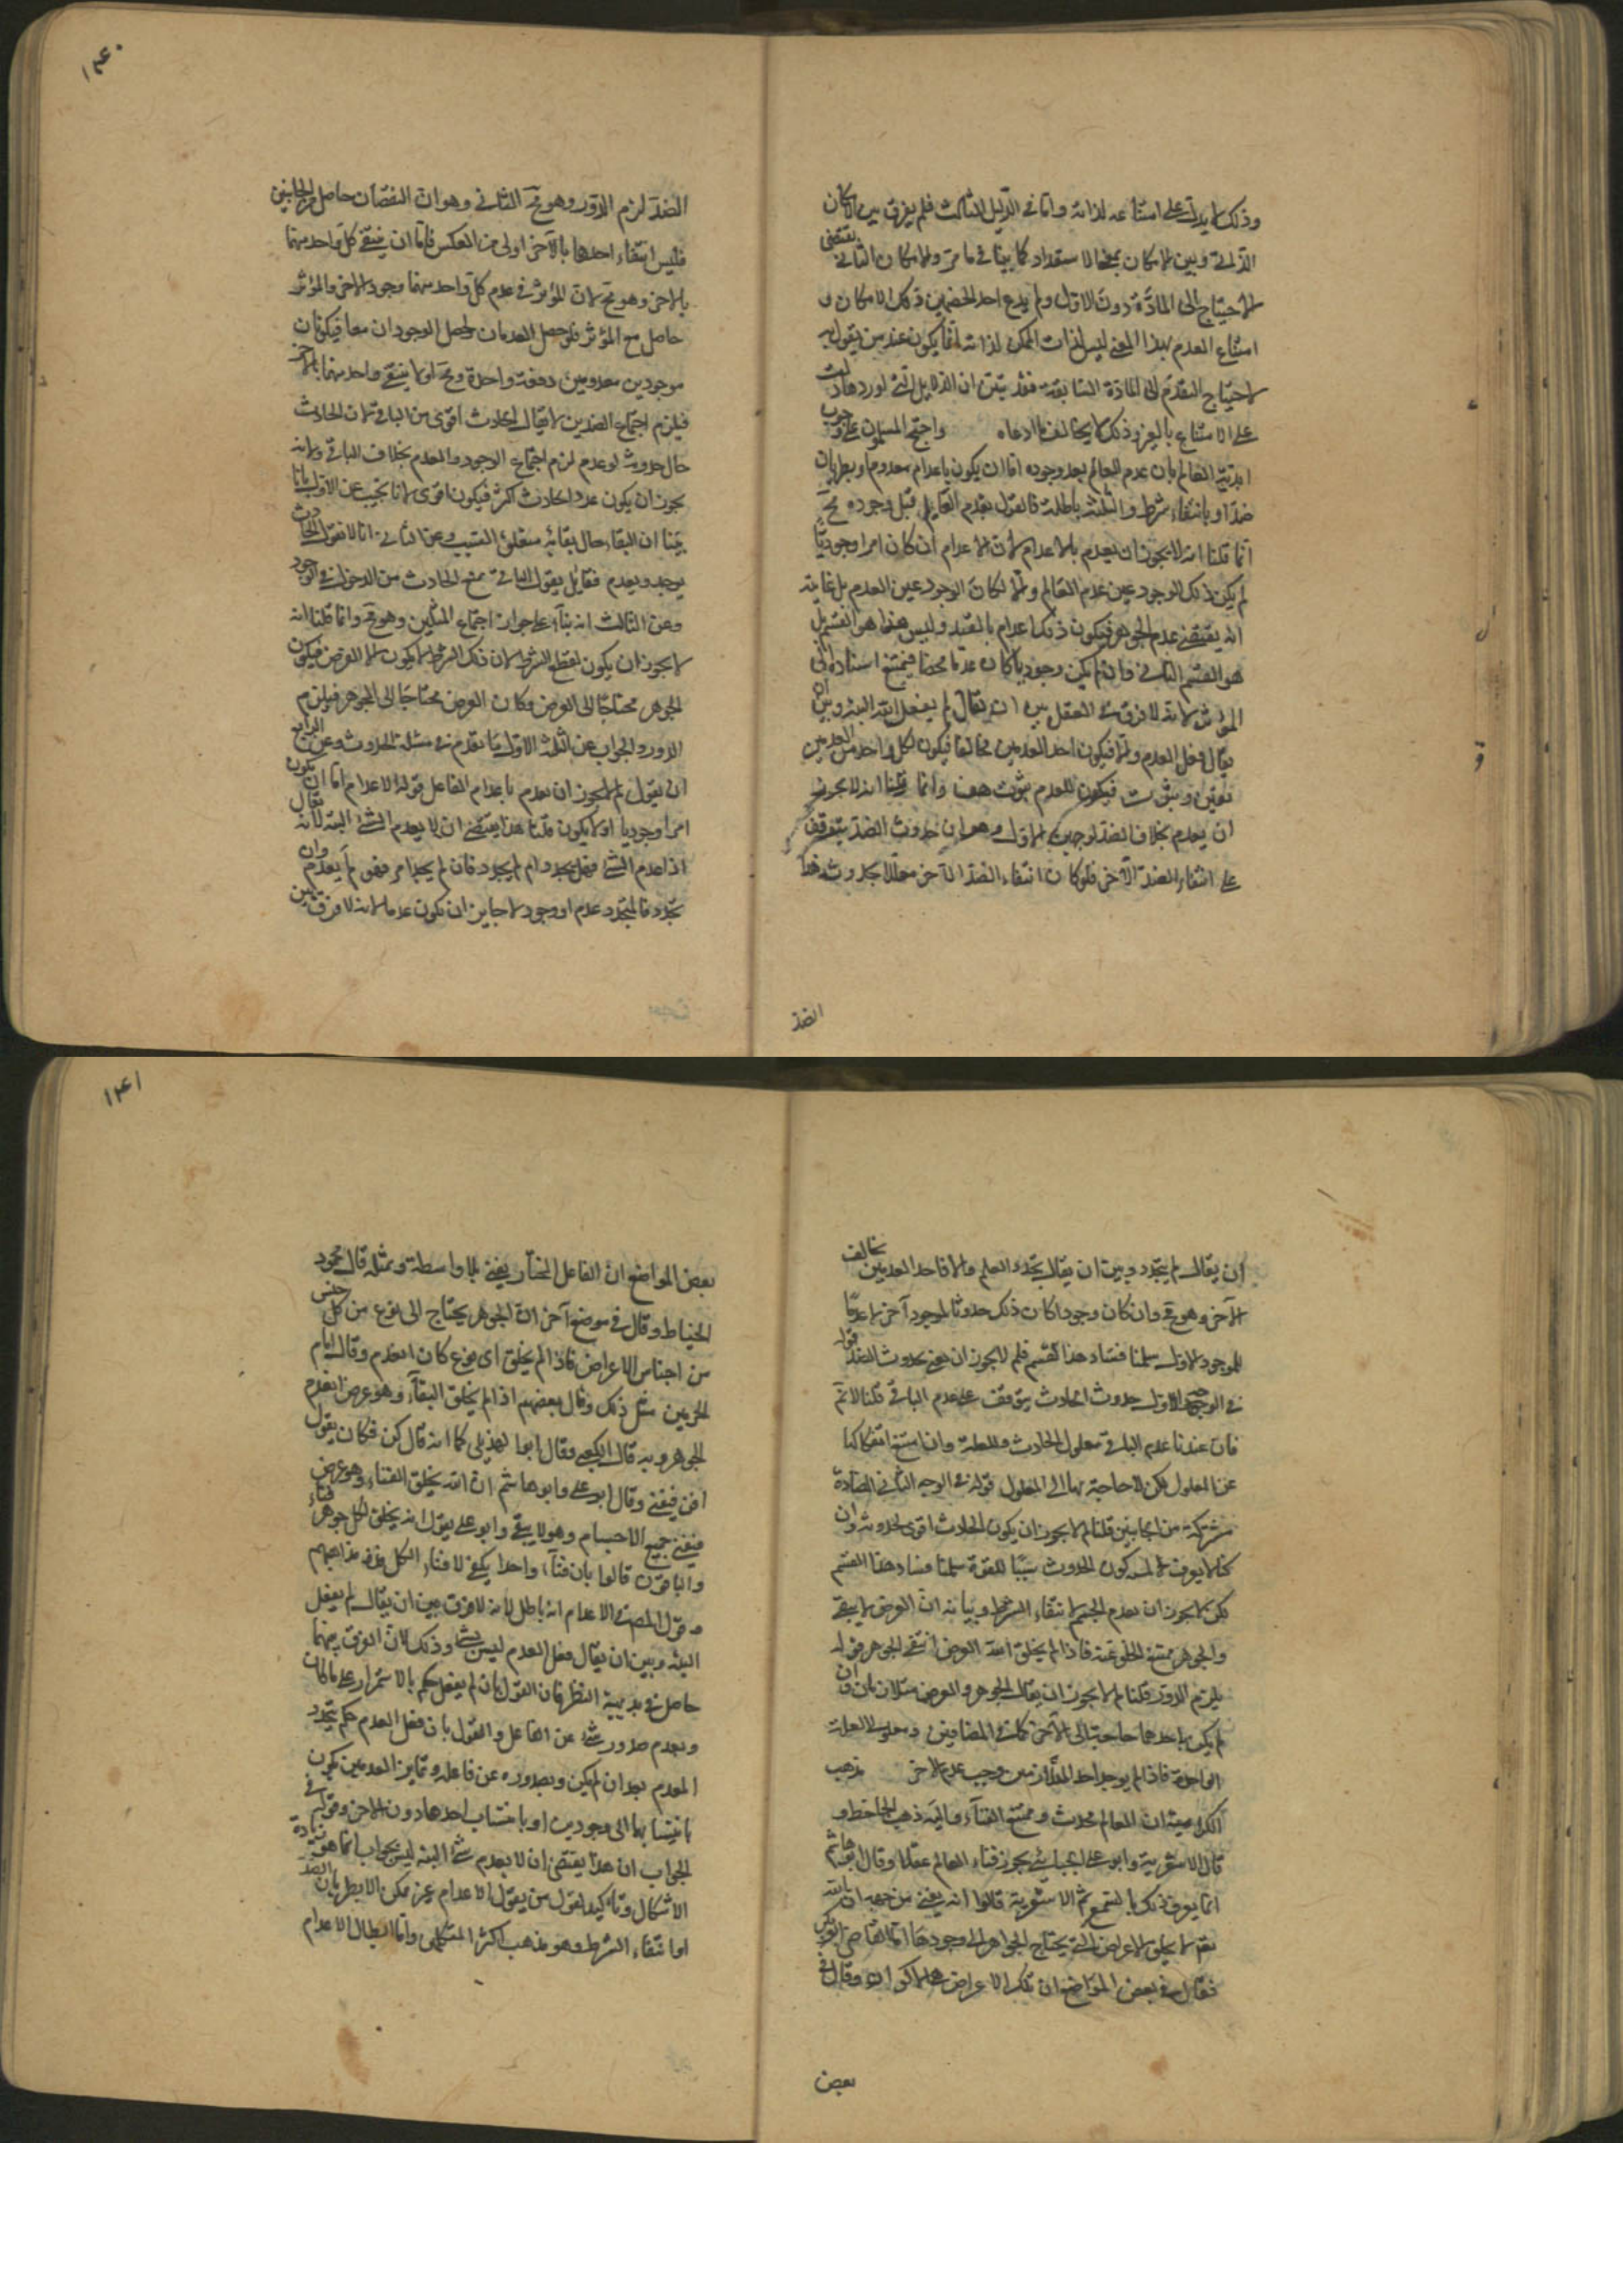 ١٤٠
وذلك لا يدل على امتناعه لذاته واما في الدليل الثالث فلم يفرق بين الامكان
الذاتي وبين الامكان بمعنى الاستعداد كما بينا في ما مر والامكان الثاني يقتضي
الاحتياج الى المادة دون الاول ولم يدع احد الخصمين ذلك الامكان و
امتناع العدم بهذا المعنى ليس لذات الممكن لذاته انما يكون عند من يقول به
لاحتياج التقدم الى المادة السابقة فقد تبين ان الدلايل التي اوردها دلت
على الامتناع بالغير وذلك لا يخالف ما ادعاه واحتج المسلمون على وجوب
ابدية العالم بان عدم العالم بعد وجوده اما ان يكون باعدام معدوم او بطريان
ضد او بانتفاء شرط والثلثة باطلة فالقول بعدم العالم قبل وجوده مح
انما قلنا انه لا يجوز ان يعدم بالاعدام لان الاعدام ان كان امرا وجوديا
لم يكن ذلك الوجود عين عدم العالم والا لكان الوجود عين العدم بل غايته
انه يقتضي عدم الجوهر فيكون ذلك اعدام بالضد وليس هذا هو القسم بل
هو القسم الثاني وان لم يكن وجوديا كان عدما محضا فيمتنع اسناده الى
المؤثر لانه لا فرق في العقل بين ان يقال لم يفعل البتة وبين ان
يقال فعل العدم والا فيكون احد العدمين مخالفا فيكون لكل واحد من العدمين
تعين وثبوت فيكون للعدم ثبوت هف وانما قلنا انه لا يجوز
ان يعدم بخلاف الضد لوجهين الاول وهو ان حدوث الضد يتوقف
على انتفاء الضد الآخر فلو كان انتفاء الضد الآخر معللا بحدوث هذا
الضد
الضد لزم الدور وهو مح الثاني وهو ان التضاد حاصل من الجانبين
فليس انتفاء احدهما بالآخر اولى من العكس فاما ان ينتفي كل واحد منهما
بالآخر وهو مح لان المؤثر في عدم كل واحد منهما وجود الآخر والمؤثر
حاصل مع المؤثر فلو حصل العدمان لحصل الوجودان معا فيكونان
موجودين معدومين دفعة واحدة وهو مح او لا ينتفي واحد منهما بالآخر
فيلزم اجتماع الضدين لا يقال الحادث اقوى من الباقي لان الحادث
حال حدوثه لو عدم لزم اجتماع الوجود والعدم بخلاف الباقي ولانه
يجوز ان يكون عدد الحادث اكثر فيكون اقوى لانا نجيب عن الاول بانا
بينا ان البقاء حال بقائه متعلق السبب وعن الثاني انا لا نقول الحادث
يوجد ويعدم فقايل يقول الباقي يمنع الحادث من الدخول في الوجود
وعن الثالث انه بناء على جواز اجتماع المثلين وهو مح وانما قلنا انه
لا يجوز ان يكون لقطع الشرط لان ذلك الشرط لا يكون الا العرض فيكون
الجوهر محتاجا الى العرض وكان العرض محتاجا الى الجوهر فيلزم
الدور والجواب عن الثلثة الاول ما تقدم في مسئلة الحدوث وعن الرابع
ان نقول لم لا يجوز ان يعدم باعدام الفاعل قوله الاعدام اما ان يكون
امرا وجوديا او لا يكون قلنا هذا يقتضي ان لا يعدم الشئ البتة لانه يقال
اذا عدم الشئ فهل يجدد ام لم يجدد فان لم يجدد امر فهو لم يعدم وان
تجدد فالمتجدد عدم او وجود لا جايز ان يكون عدما لانه لا فرق بين
١٤١
ان يقال لم يتجدد وبين ان يقال تجدد العدم والا فاحد العدمين يخالف
الآخر وهو مح وان كان وجودا كان ذلك حدوثا لموجود آخر لا عدما
للموجود الاول سلمنا فساد هذا القسم فلم لا يجوز ان يفنى بحدوث الضد قوله
في الوجه الاول حدوث الحادث يتوقف على عدم الباقي قلنا لا نم
فان عندنا عدم الباقي معلول الحادث والعلة وان امتنع انفكاكها
عن المعلول لكن لا حاجة بها الى المعلول قوله في الوجه الثاني المضادة
مشتركة من الجانبين قلنا لم لا يجوز ان يكون الحادث اقوى لحدوثه وان
كنا لا نعرف لمية كون الحدوث سببا للقوة سلمنا فساد هذا القسم
لكن لم لا يجوز ان يعدم الجسم لانتفاء الشرط وبيانه ان العرض لا يبقى
والجوهر ممتنع الخلو عنه فاذا لم يخلق الله العرض انتفى الجوهر قوله
يلزم الدور قلنا لم لا يجوز ان يقال الجوهر والعرض متلازمان وان
لم يكن باحدهما حاجة الى الآخر كما في المضافين ومعلولي العلة
الواحدة فاذا لم يوجد احد المتلازمين وجب عدم الآخر مذهب
الكرامية ان العالم محدث وممتنع الفناء واليه ذهب الجاحظ و
قال الاشعرية وابو على الجبائي يجوز فناء العالم عقلا وقال ابو هاشم
انما يعرف ذلك بالسمع ثم الاشعرية قالوا انه يفنى من جهة ان الله
تعم لا يخلق الاعراض التي يحتاج الجواهر الى وجودها اما القاضي ابو بكر
فقال في بعض المواضع ان تلك الاعراض هي الاكوان وقال في
بعض
بعض المواضع ان الفاعل المختار يفني بلا واسطة وبمثله قال محمود
الخياط وقال في موضع آخر ان الجوهر يحتاج الى نوع من كل جنس
من اجناس الاعراض فاذا لم يخلق اي نوع كان انعدم وقال امام
الحرمين مثل ذلك وقال بعضهم اذا لم يخلق البقاء وهو عرض انعدم
الجوهر وبه قال الكعبي وقال ابو الهذيل كما انه قال كن فكان يقول
افن فيفنى وقال ابو على وابو هاشم ان الله يخلق الفناء وهو عرض
فيفني جميع الاجسام وهو لا يبقى وابو على يقول انه يخلق لكل جوهر فناء
والباقون قالوا بان فناء واحدا يكفي لافناء الكل فهذه مذاهبهم
وقول المص في الاعدام انه باطل لانه لا فرق بين ان يقال لم يفعل
البتة وبين ان يقال فعل العدم ليس بشئ وذلك لان الفرق بينهما
حاصل في بديهة النظر فان القول بان لم يفعل حكم بالاستمرار على ما كان
وبعدم صدور شئ عن الفاعل والقول بان فعل العدم حكم بتجدد
العدم بعد ان لم يكن وبصدوره عن فاعله وتمايز العدمين يكون
بانتسابهما الى وجودين او بانتساب احدهما دون الآخر وقولهم في
الجواب ان هذا يقتضي ان لا يعدم شئ البتة ليس بجواب انما هو زيادة
الاشكال وتاكيد لقول من يقول الاعدام غير ممكن الا بطريان الضد
او انتفاء الشرط وهو مذهب اكثر المتكلمين واما ابطال الاعدام